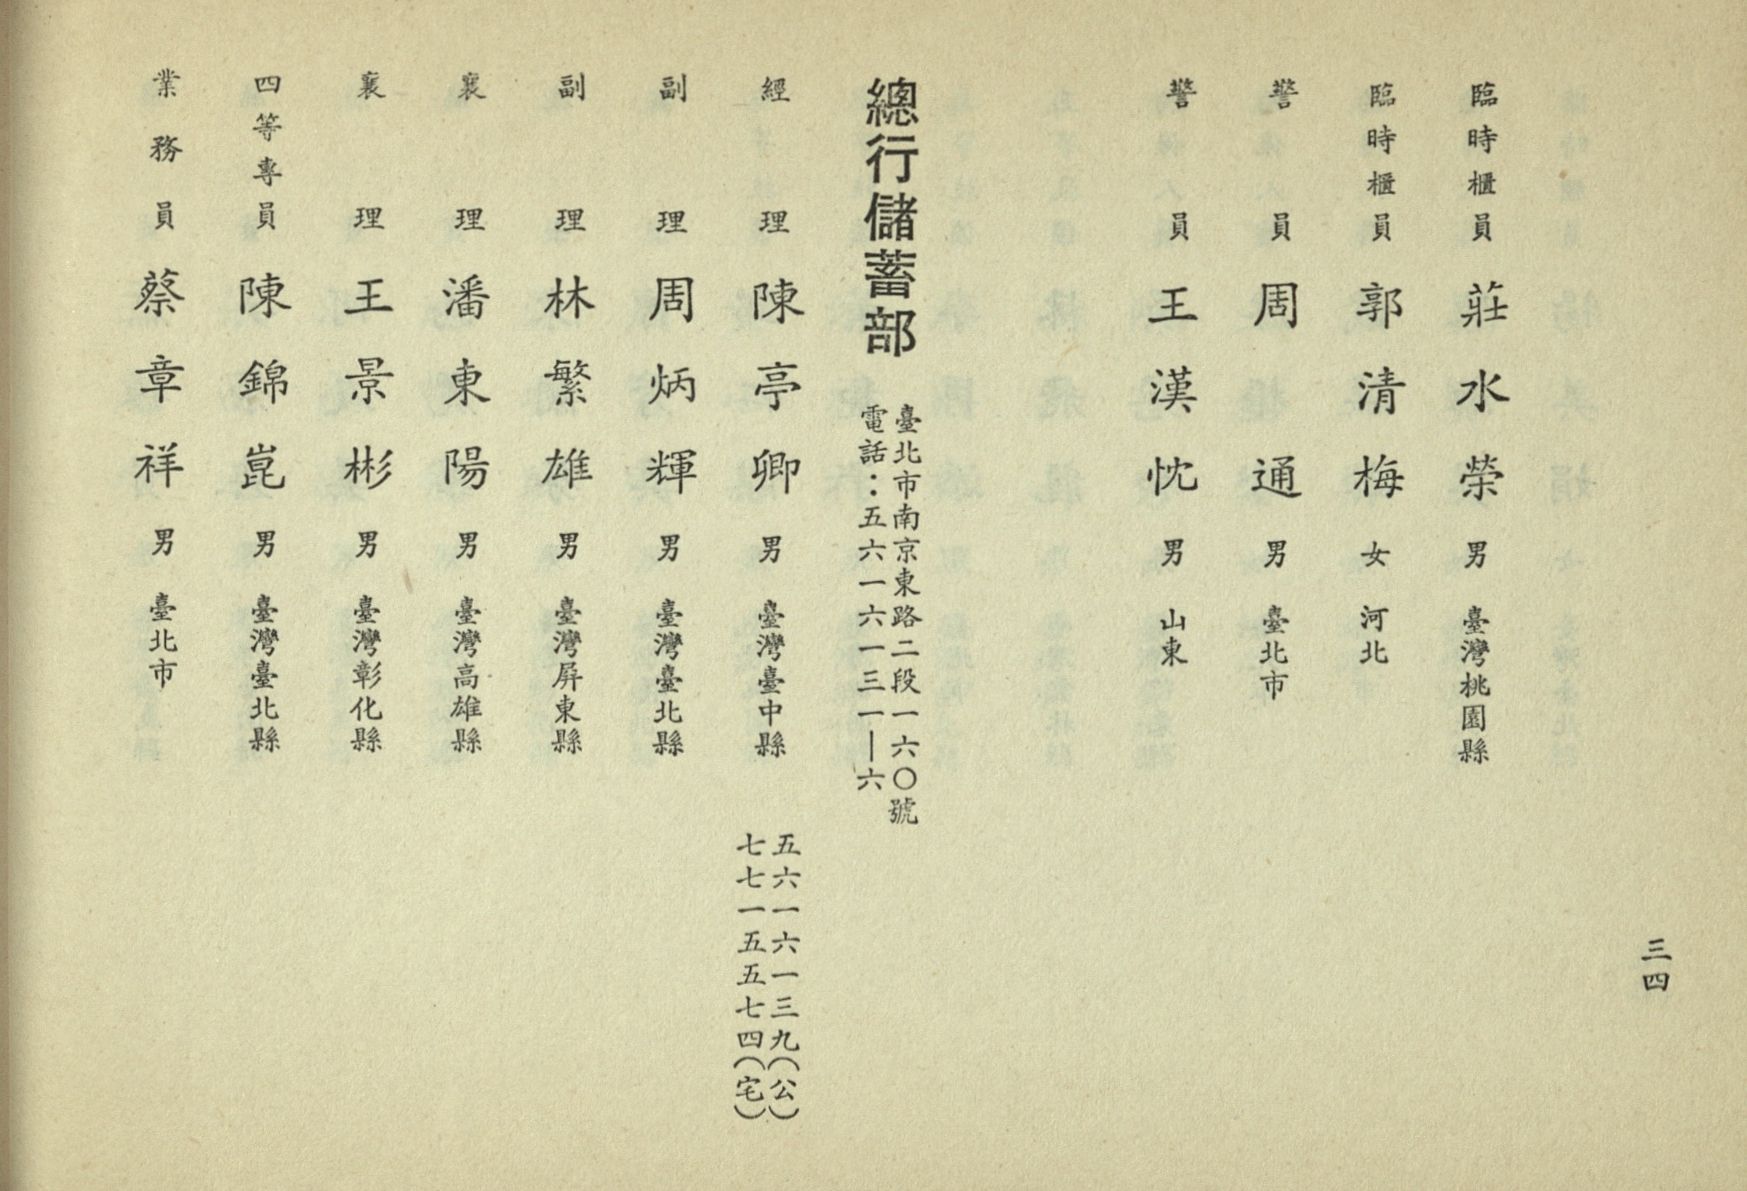 三四
臨時櫃員 莊水榮 男 臺灣桃園縣
臨時櫃員 郭清梅 女 河北
警員 周通 男 臺北市
警員 王漢忱 男 山東
總行儲蓄部
臺北市南京東路二段一六〇號
電話：五六一六一三一—六
經理 陳亭卿 男 臺灣臺中縣 五六一六一三九(公)
七七一五五七四(宅)
副理 周炳輝 男 臺灣臺北縣
副理 林繁雄 男 臺灣屏東縣
襄理 潘東陽 男 臺灣高雄縣
襄理 王景彬 男 臺灣彰化縣
四等專員 陳錦崑 男 臺灣臺北縣
業務員 蔡章祥 男 臺北市